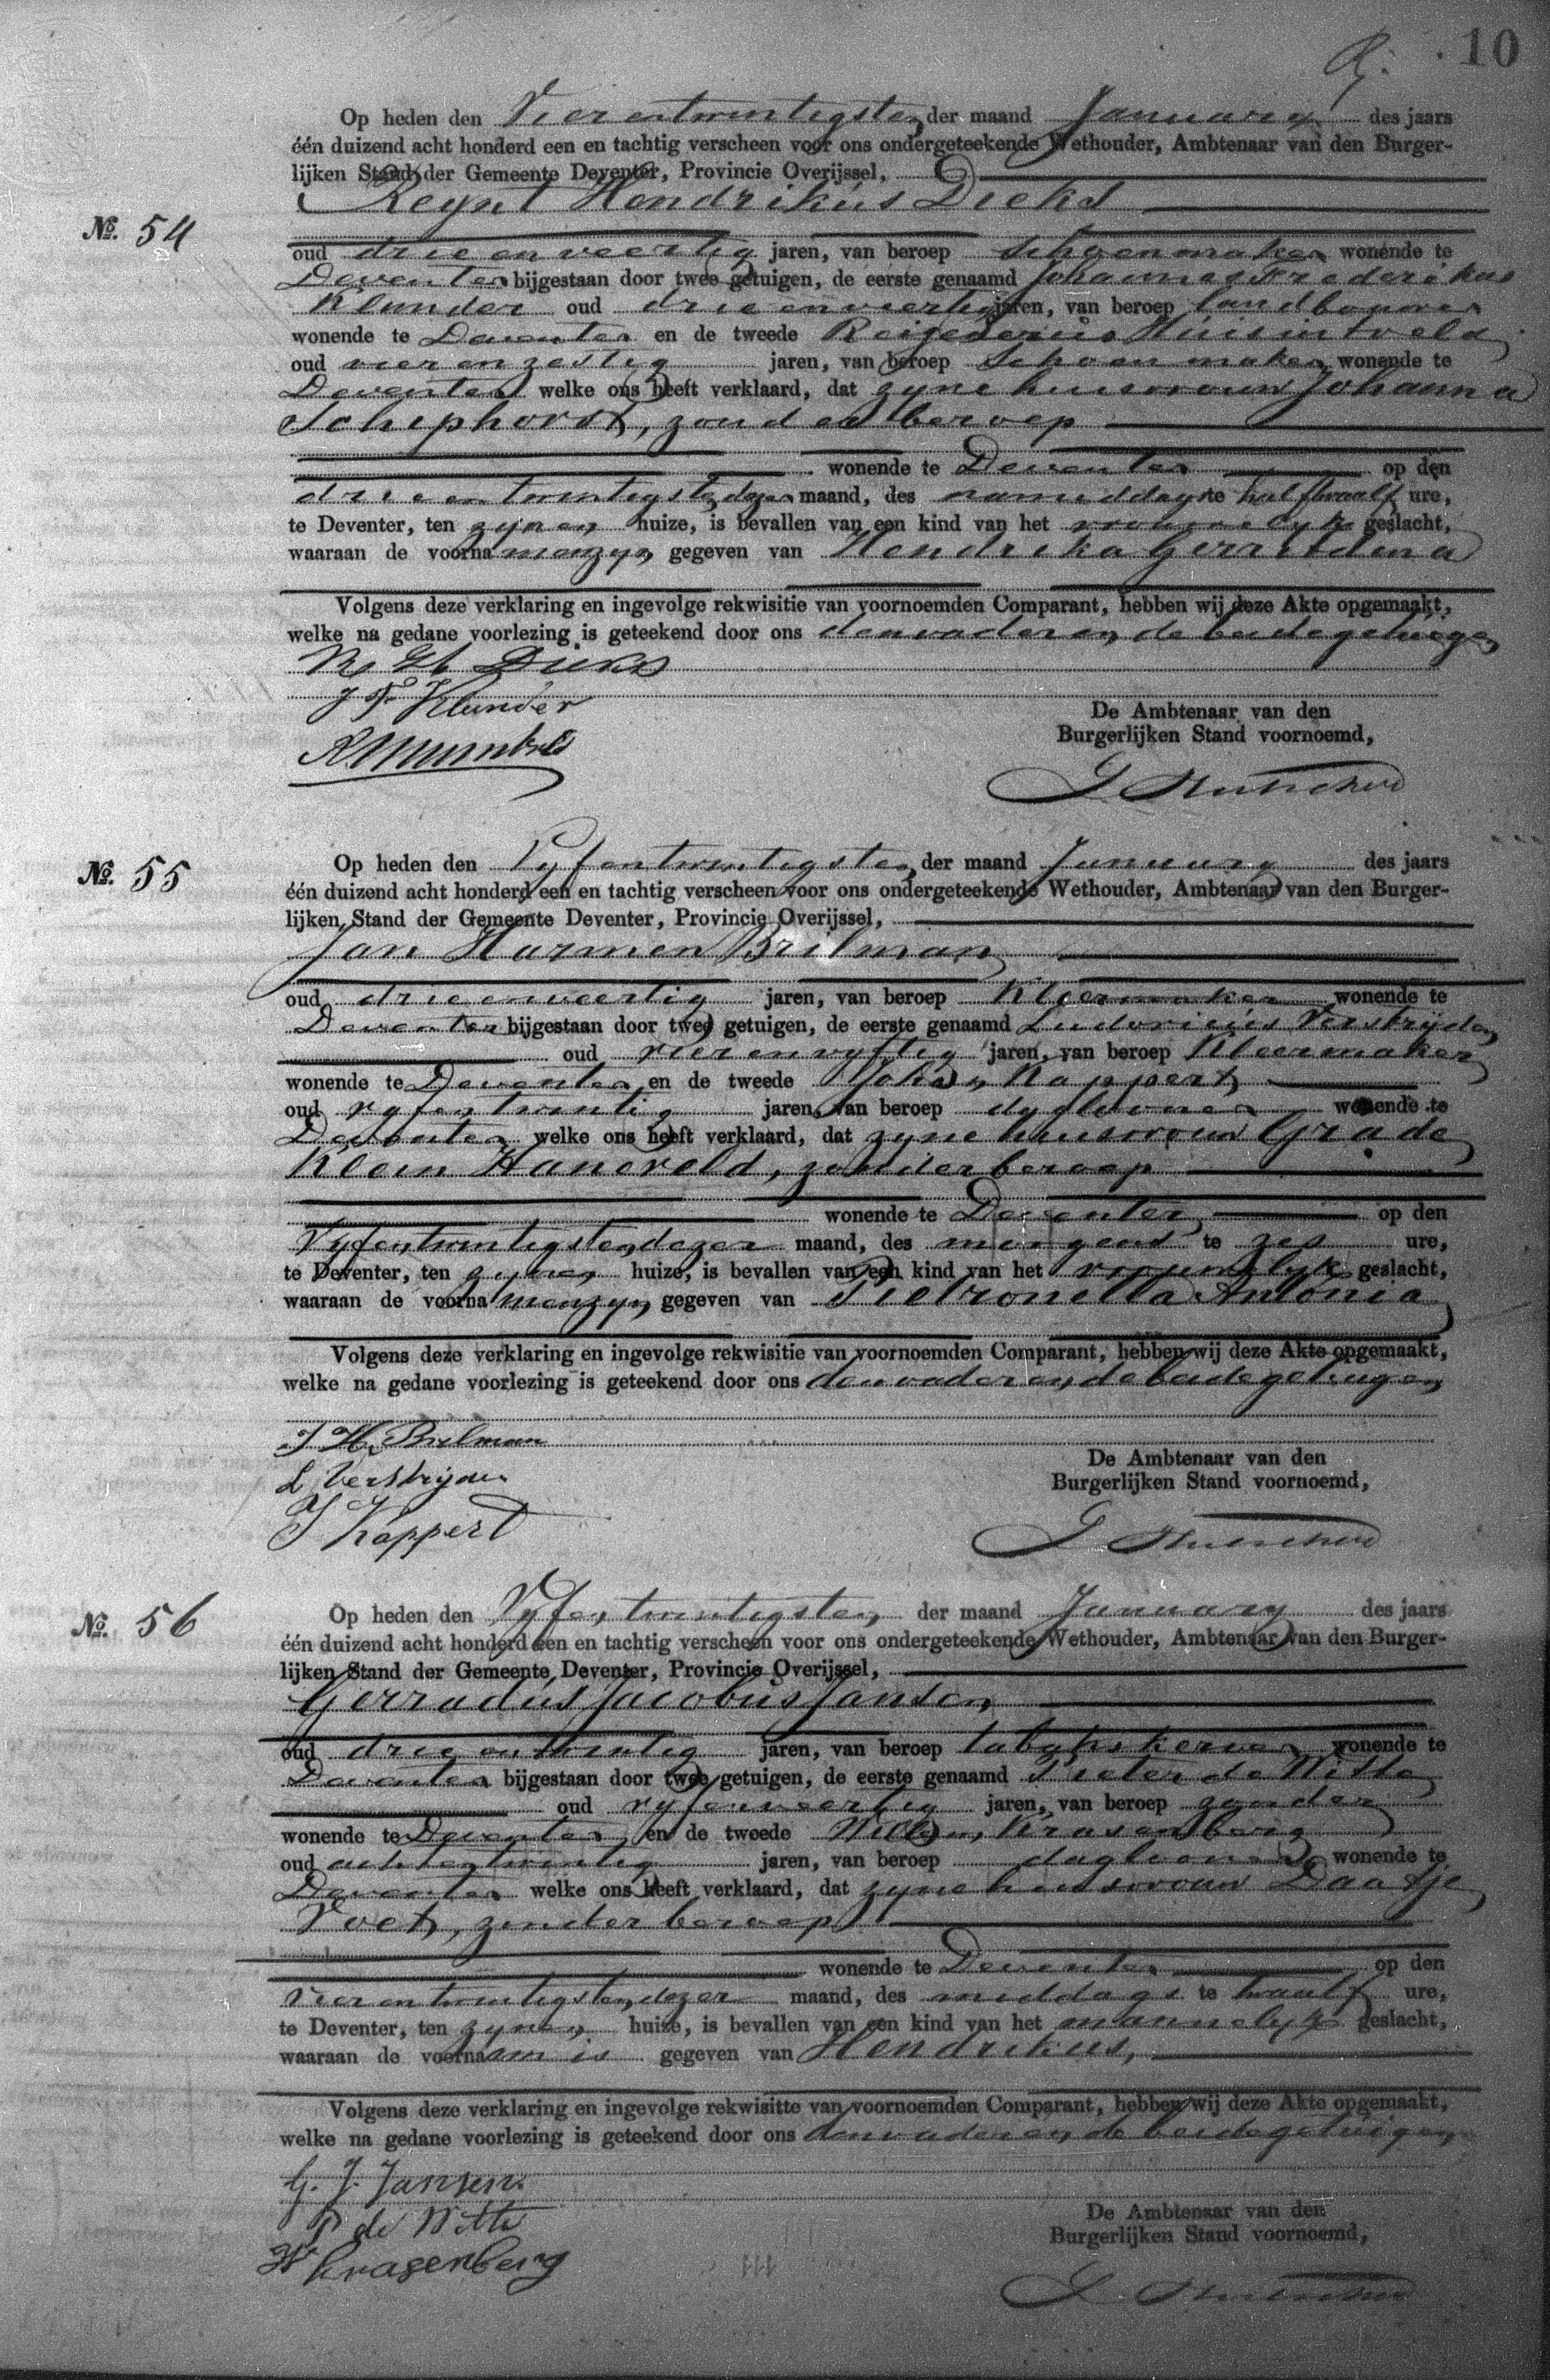 10
Op heden den Vierentwintigsten der maand January des jaars
één duizend acht honderd een en tachtig verscheen voor ons ondergeteekende Wethouder, Ambtenaar van den Burger-
lijken Stand der Gemeente Deventer, Provincie Overijssel,
Reynt Hendrikus Dieks
No. 54
oud drieenveertig jaren, van beroep Schoenmaker wonende te
Deventer bijgestaan door twee getuigen, de eerste genaamd Johannes Frederikus
Klunder oud drieenveertig jaren, van beroep landbouwer
wonende te Deventer en de tweede Huisintveld
oud vierenzestig jaren, van beroep Schoenmaker wonende te
Deventer welke ons heeft verklaard, dat zyne huisvrouw Johanna
Schephorst, zonder beroep
wonende te Deventer op den
drieentwintigsten dezer maand, des namiddags te half twaalf ure,
te Deventer, ten zynen huize, is bevallen van een kind van het vrouwelyk geslacht,
waaraan de voornamen zyn gegeven van Hendrika Gerritdina
Volgens deze verklaring en ingevolge rekwisitie van voornoemden Comparant, hebben wij deze Akte opgemaakt,
welke na gedane voorlezing is geteekend door ons den vader en de beide getuigen
R H Dieks
J F Klunder
De Ambtenaar van den
Burgerlijken Stand voornoemd,
No. 55
Op heden den Vyfentwintigsten der maand January des jaars
één duizend acht honderd een en tachtig verscheen voor ons ondergeteekende Wethouder, Ambtenaar van den Burger-
lijken Stand der Gemeente Deventer, Provincie Overijssel,
Jan Harmen Brilman
oud drieenveertig jaren, van beroep Kleermaker wonende te
Deventer bijgestaan door twee getuigen, de eerste genaamd Ludovicus Verstrijden
oud vierenvyftig jaren, van beroep Kleermaker
wonende te Deventer en de tweede Johan Kappert
oud vyfentwintig jaren, van beroep daglooner wonende te
Deventer welke ons heeft verklaard, dat zyne huisvrouw Grade
Klein Haneveld, zonder beroep
wonende te Deventer op den
Vyfentwintigsten dezer maand, des morgens te zes ure,
te Deventer, ten zynen huize, is bevallen van een kind van het vrouwelyk geslacht,
waaraan de voornamen zyn gegeven van Pietronella Antonia
Volgens deze verklaring en ingevolge rekwisitie van voornoemden Comparant, hebben wij deze Akte opgemaakt,
welke na gedane voorlezing is geteekend door ons den vader en de beide getuigen
J H Brilman
L Verstrijden
J Kappert
De Ambtenaar van den
Burgerlijken Stand voornoemd,
No. 56
Op heden den Vyfentwintigsten der maand January des jaars
één duizend acht honderd een en tachtig verscheen voor ons ondergeteekende Wethouder, Ambtenaar van den Burger-
lijken Stand der Gemeente Deventer, Provincie Overijssel,
Gerradus Jacobus Jansen
oud drieentwintig jaren, van beroep tabakskerver wonende te
Deventer bijgestaan door twee getuigen, de eerste genaamd Pieter de Witte
oud vyfenveertig jaren, van beroep zonder
wonende te Deventer en de tweede Willem Krasenberg
oud achtentwintig jaren, van beroep daglooner wonende te
Deventer welke ons heeft verklaard, dat zyne huisvrouw Daatje
Voet, zonder beroep
wonende te Deventer op den
Vierentwintigsten dezer maand, des middags te twaalf ure,
te Deventer, ten zynen huize, is bevallen van een kind van het mannelyk geslacht,
waaraan de voornaam is gegeven van Hendrikus,
Volgens deze verklaring en ingevolge rekwisitte van voornoemden Comparant, hebben wij deze Akte opgemaakt,
welke na gedane voorlezing is geteekend door ons den vader en de beide getuigen
G. J. Jansen.
P de Witte
W Krasenberg
De Ambtenaar van den
Burgerlijken Stand voornoemd,